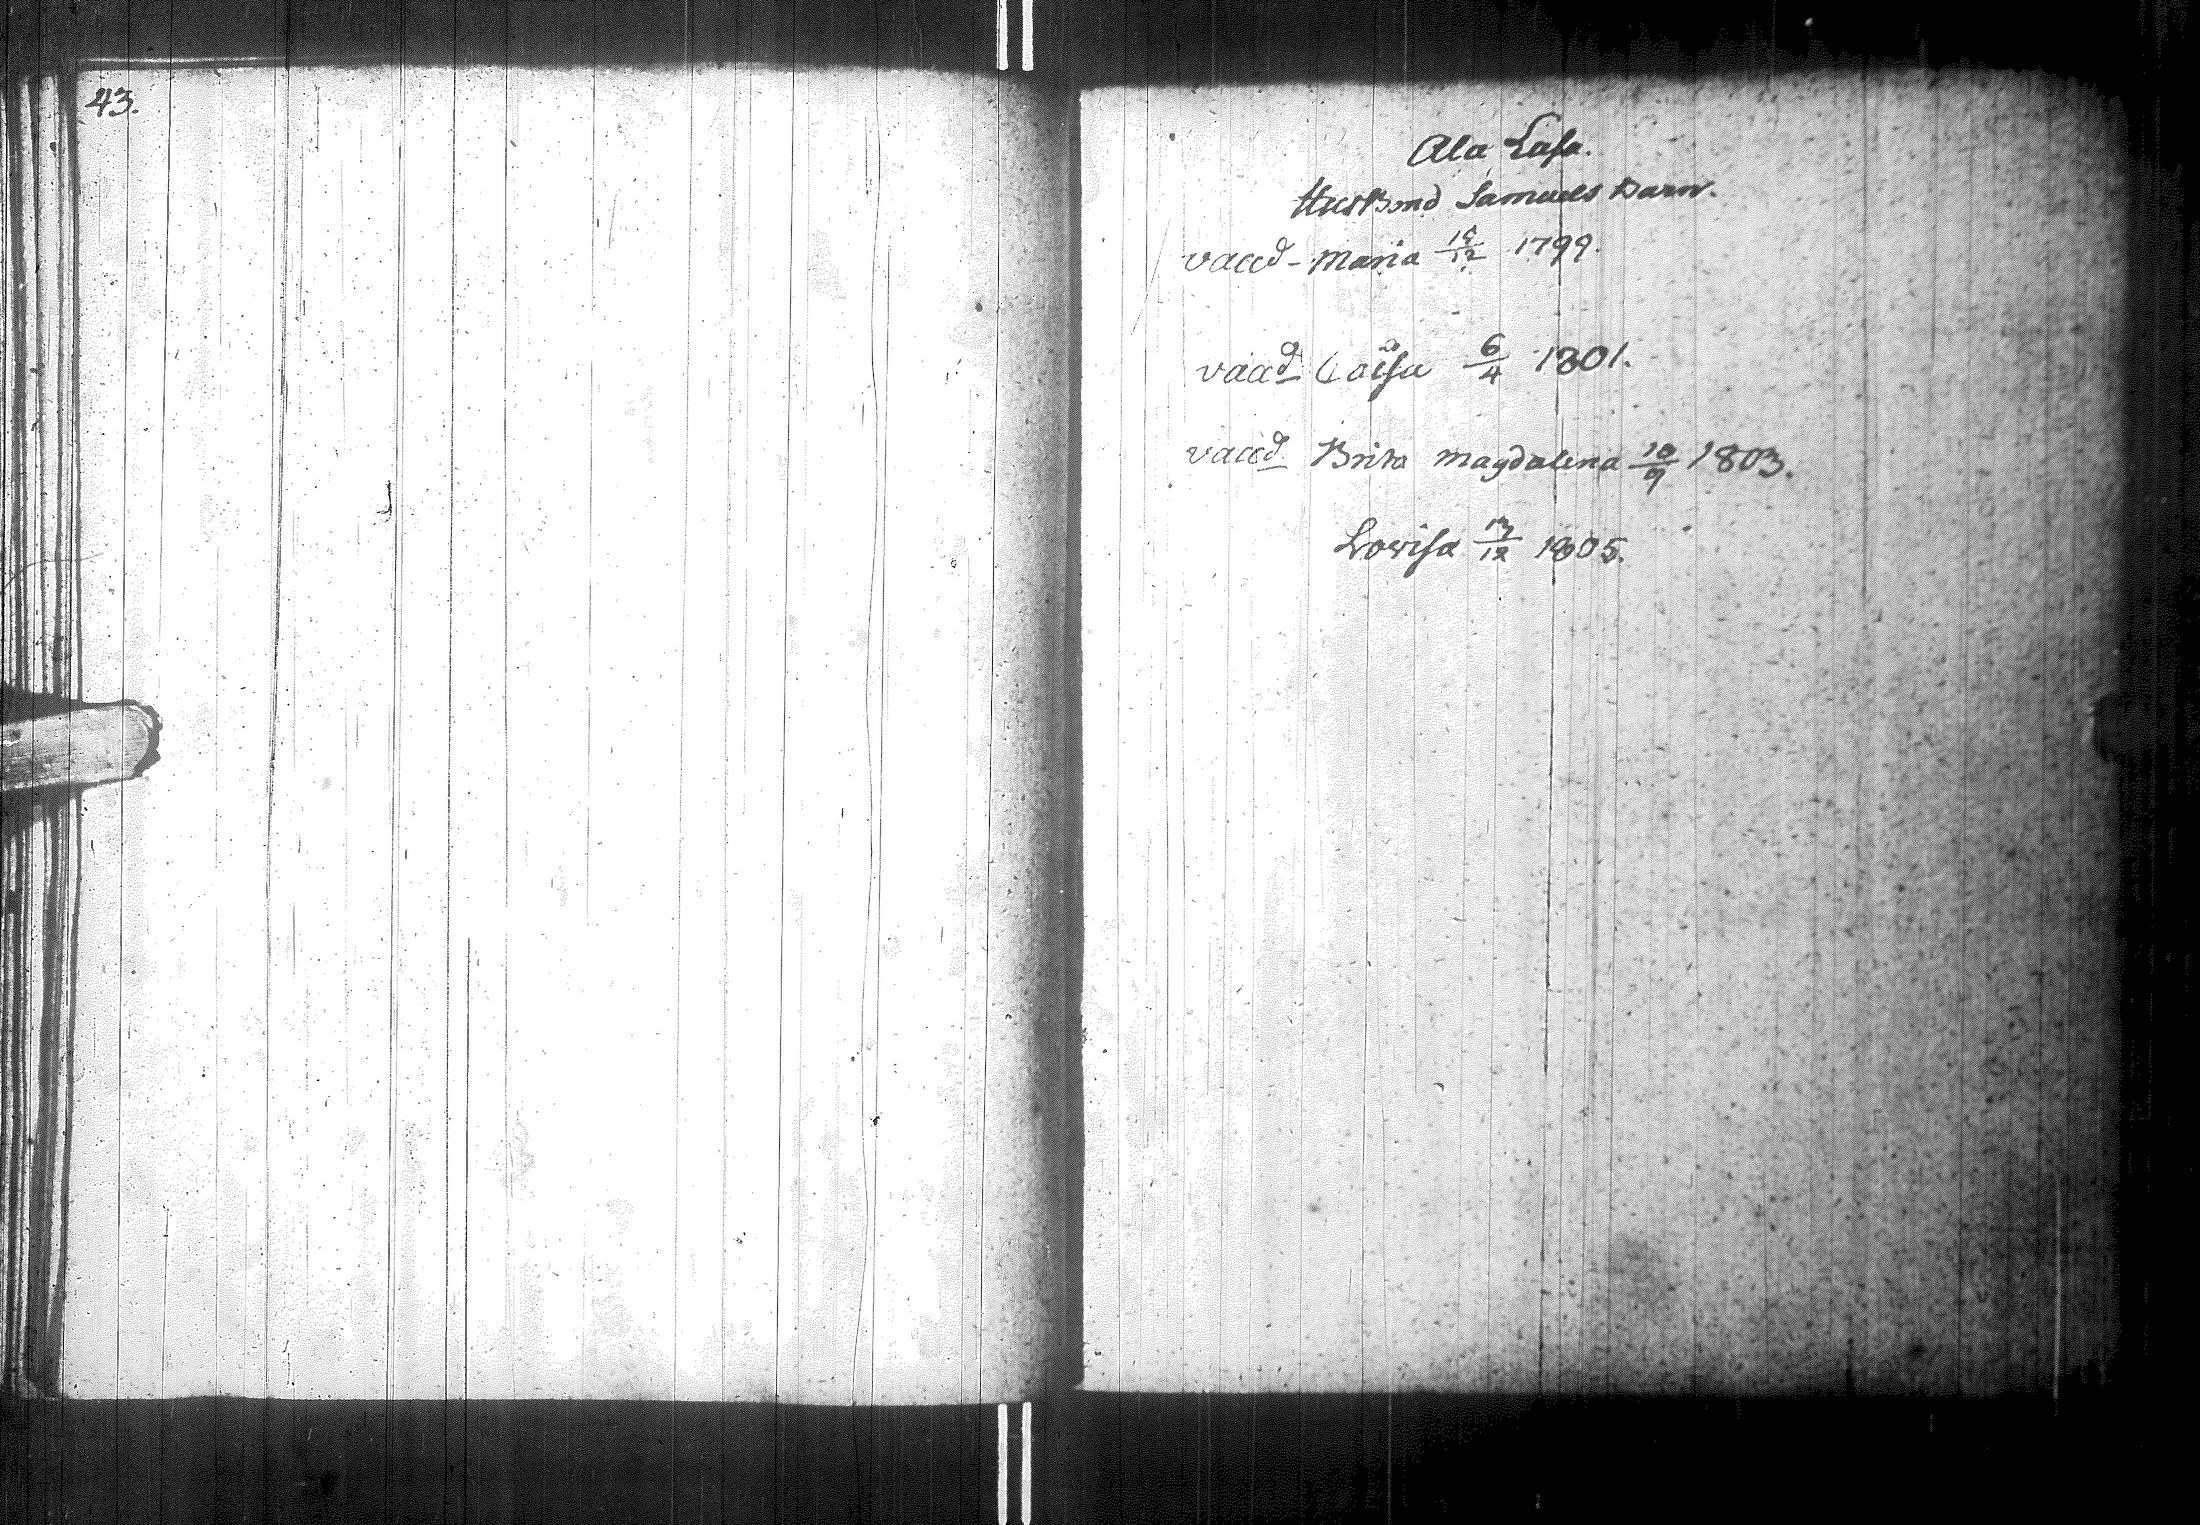 43.
Ala Lasa.
Husbond Samuels Barn.
vaccd - Maria 19/12 1799.
vaccd Caisa 6/4 1801.
vaccd Brita Magdalena 10/9 1803.
Lovisa 13/12 1805.